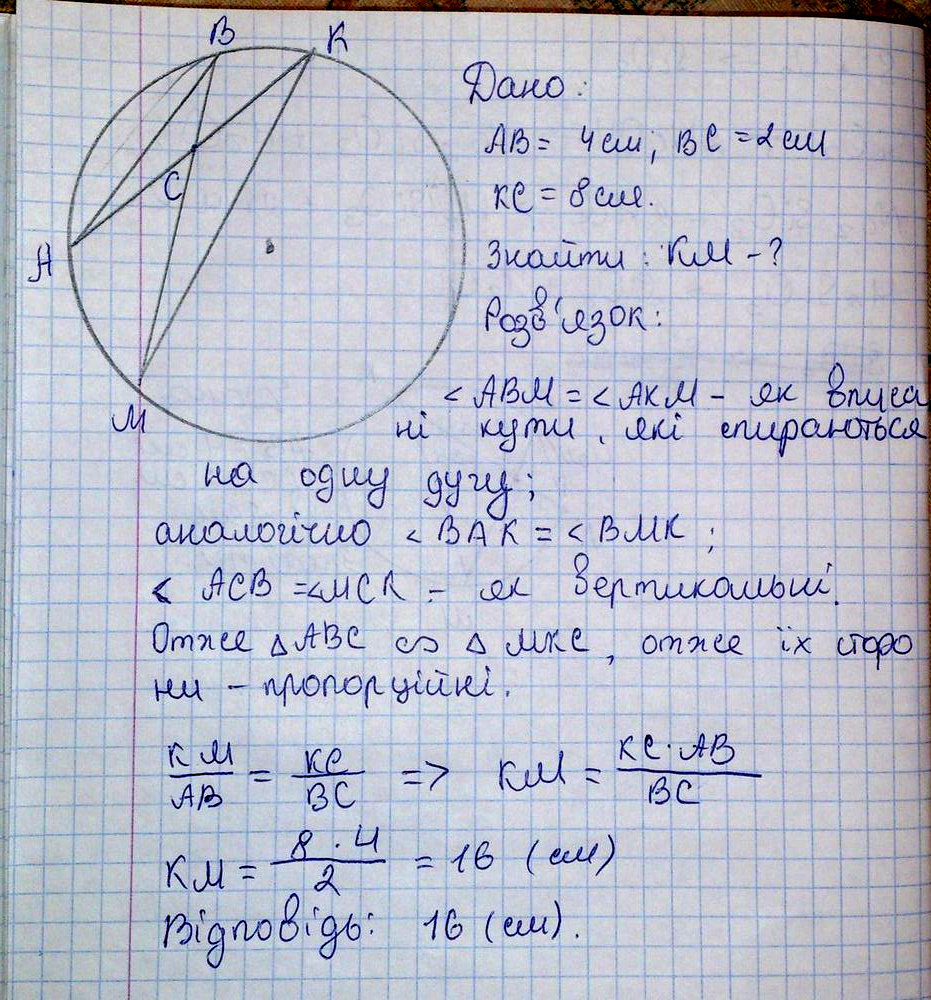 B K
A
C
M
Дано:
AB = 4 см; BC = 2 см
KC = 8 см.
Знайти: KM - ?
Розв'язок:
< ABM = < AKM - як вписа
ні кути, які спираються
на одну дугу;
аналогічно < BAK = < BMK;
< ACB = < MCK - як вертикальні.
Отже Δ ABC ∽ Δ MKC, отже їх сторо
ни - пропорційні.
KM/AB = KC/BC => KM = KC · AB/BC
KM = 8 · 4/2 = 16 (см)
Відповідь: 16 (см).